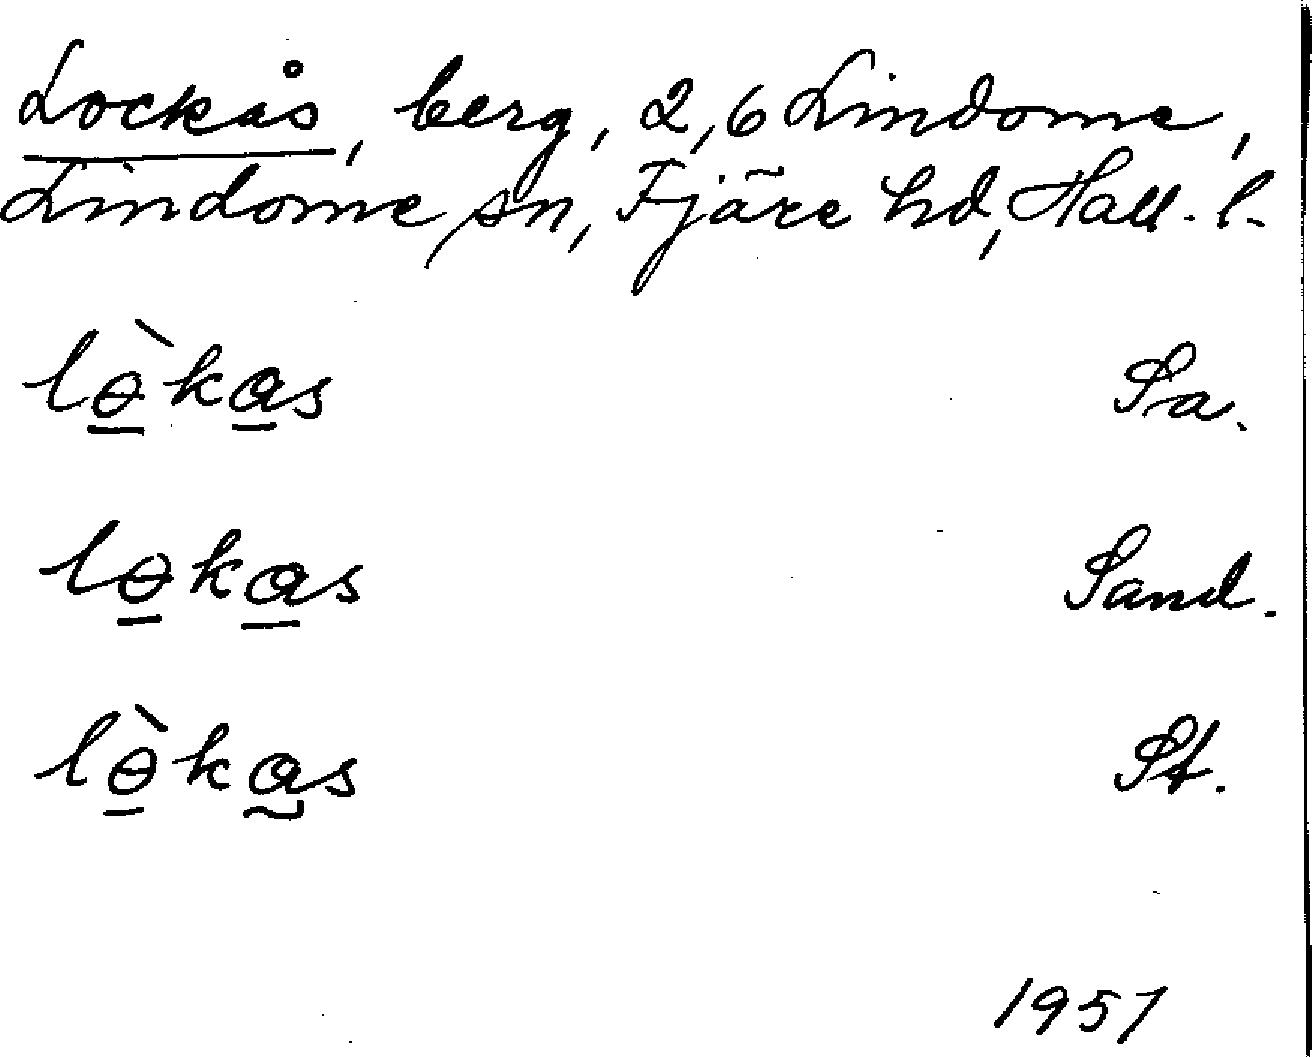 Lockås, berg, 2,6 Lindome,
Lindome sn, Fjäre hd, Hall. l.
lɵ̀kas Sa.
lɵkas Sand.
lɵ̀kas St.
1957